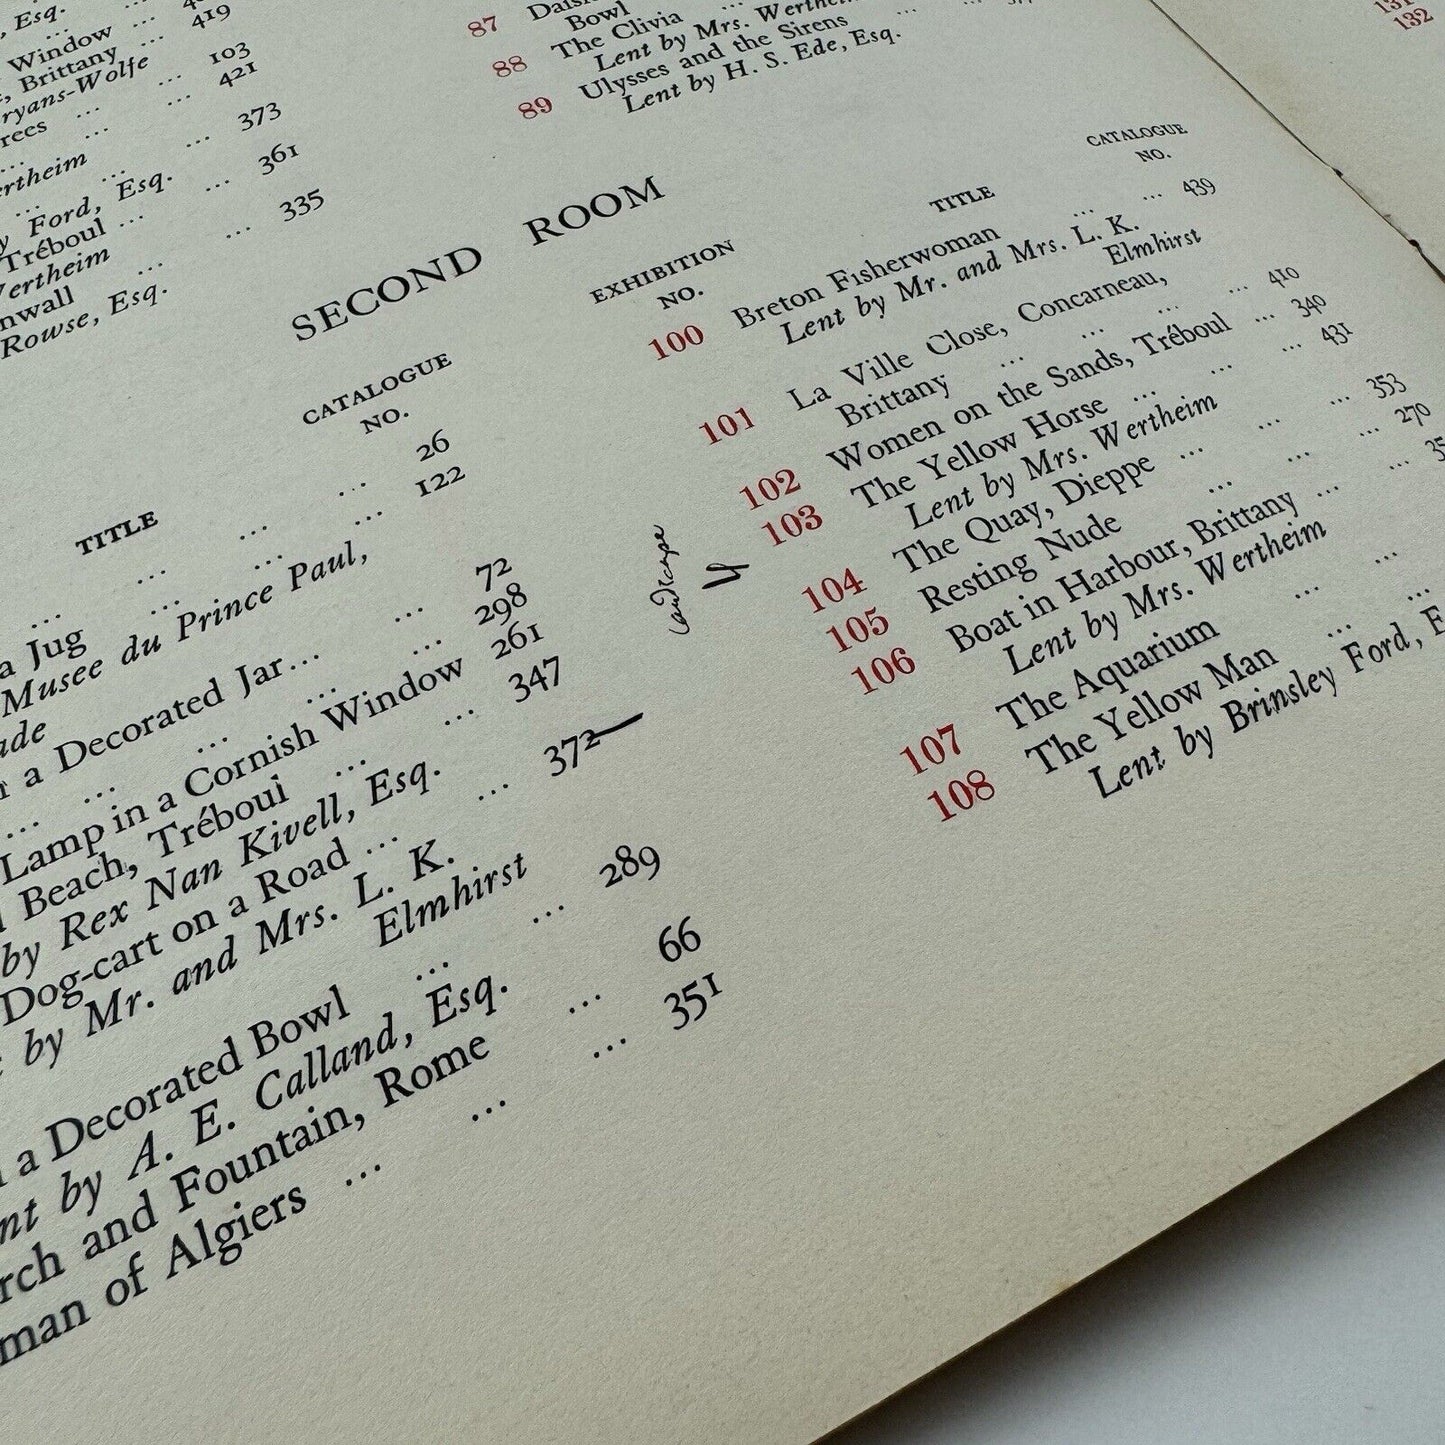 Esq.
Window ...
419
, Brittany ...
ryans-Wolfe
103
rees ... ...
421
... ...
ertheim ... 373
...
y Ford, Esq. ... 361
Tréboul ...
Wertheim ... 335
nwall ...
Rowse, Esq.
87
Bowl
88 The Clivia ...
Lent by Mrs. Wertheim
89 Ulysses and the Sirens
Lent by H. S. Ede, Esq.
SECOND ROOM
TITLE
CATALOGUE
NO.
... ... ... 26
... ... ... 122
a Jug ...
Musee du Prince Paul,
ade
a Decorated Jar... ... 72
... ... ... ... 298
Lamp in a Cornish Window 261
Beach, Tréboul ... ... 347
by Rex Nan Kivell, Esq.
Dog-cart on a Road ... ... 372
by Mr. and Mrs. L. K.
Elmhirst
a Decorated Bowl ... ... 289
nt by A. E. Calland, Esq.
rch and Fountain, Rome ... 66
man of Algiers ... ... ... 351
EXHIBITION
NO.
TITLE
CATALOGUE
NO.
100 Breton Fisherwoman ... ... 439
Lent by Mr. and Mrs. L. K.
Elmhirst
101 La Ville Close, Concarneau,
Brittany ... ... ... ... 410
102 Women on the Sands, Tréboul ... 340
103 The Yellow Horse ... ... ... 431
Lent by Mrs. Wertheim
Landscape
104 The Quay, Dieppe ... ... ... 353
105 Resting Nude ... ... ... 270
106 Boat in Harbour, Brittany ... ...
Lent by Mrs. Wertheim
107 The Aquarium ... ...
108 The Yellow Man ... ...
Lent by Brinsley Ford, E
131
132